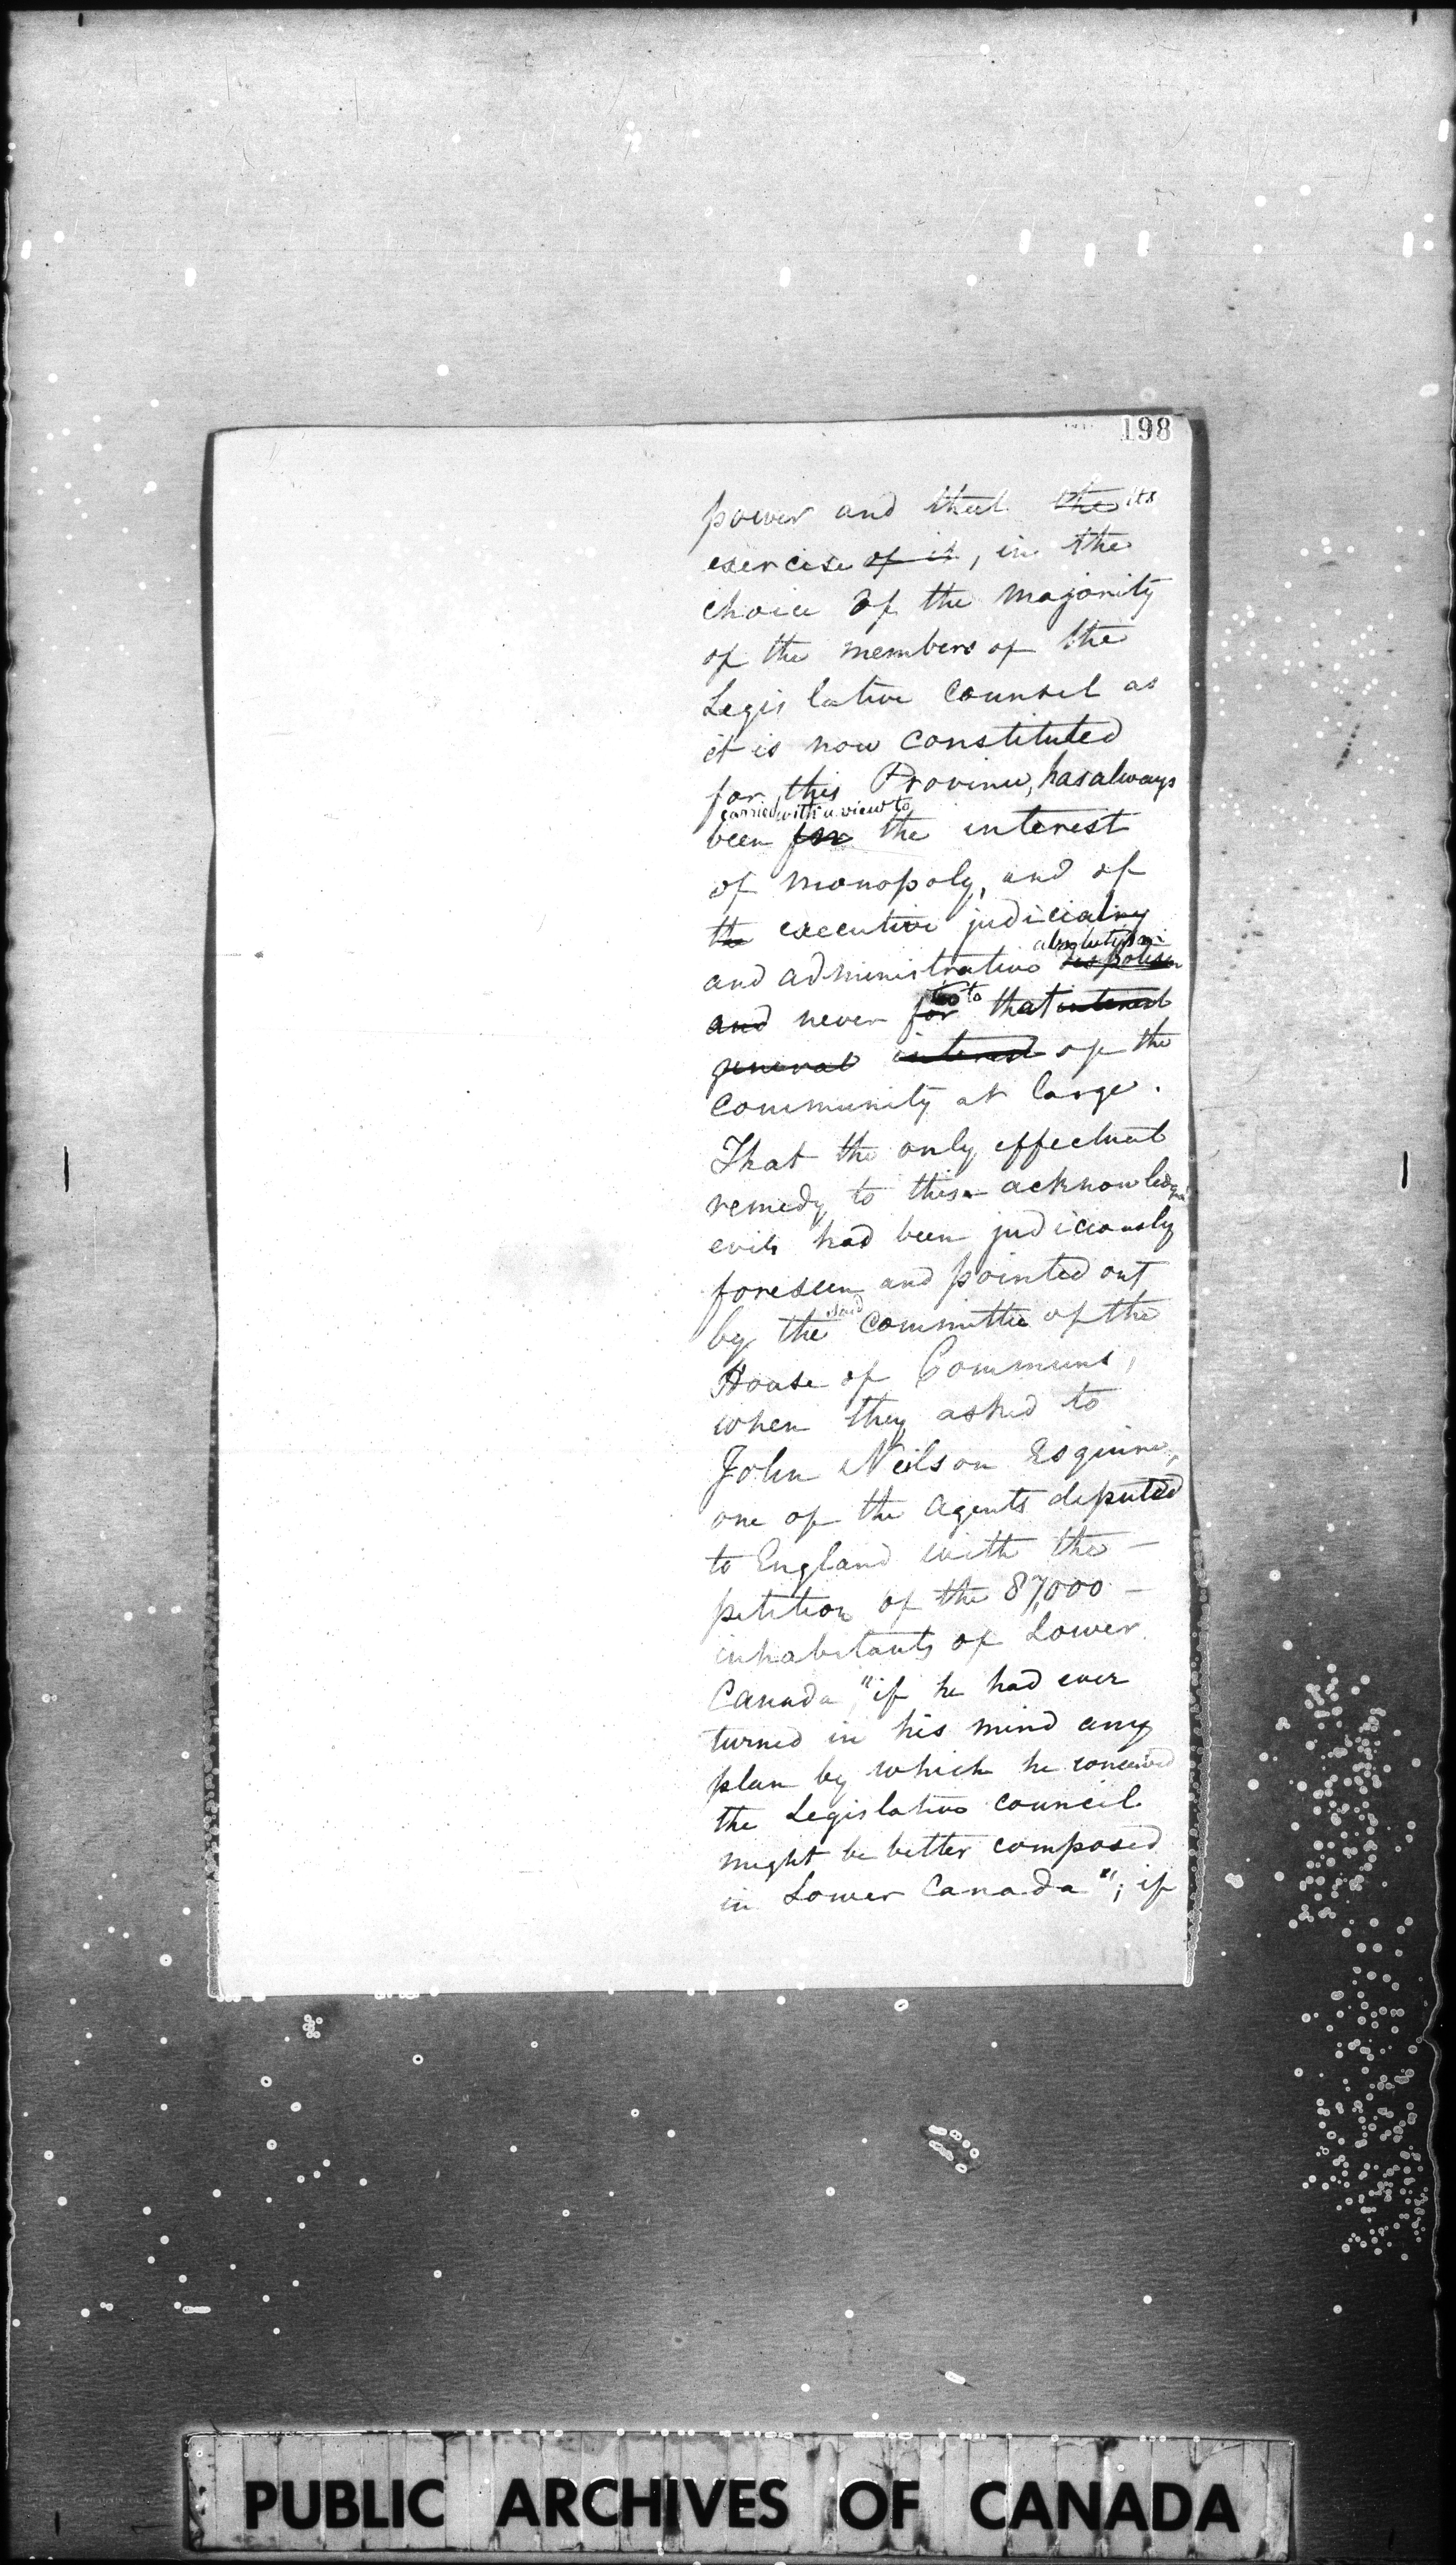 198
power and that the its
exercise of it, in the
choice of the majority
of the members of the
Legis lative Counsel as
it is now constituted
for this Province, has always
carried with a view to
been for the interest
of monopoly, and of
the executive judicialry
absolutism
and administrative despotism
to
and never for that interest
general interest of the
community at large.
That the only effectual
remedy to these acknowledged
evils had been judiciously
foreseen and pointed out
said
by the Committee of the
House of Communs,
when they asked to
John Neilson Esquire,
one of the Agents deputed
to England with the —
petition of the 87,000 —
inhabitants of Lower
Canada, "if he had ever
turned in his mind any
plan by which he conceived
the Legislative council
might be better composed
in Lower Canada"; if
PUBLIC ARCHIVES OF CANADA